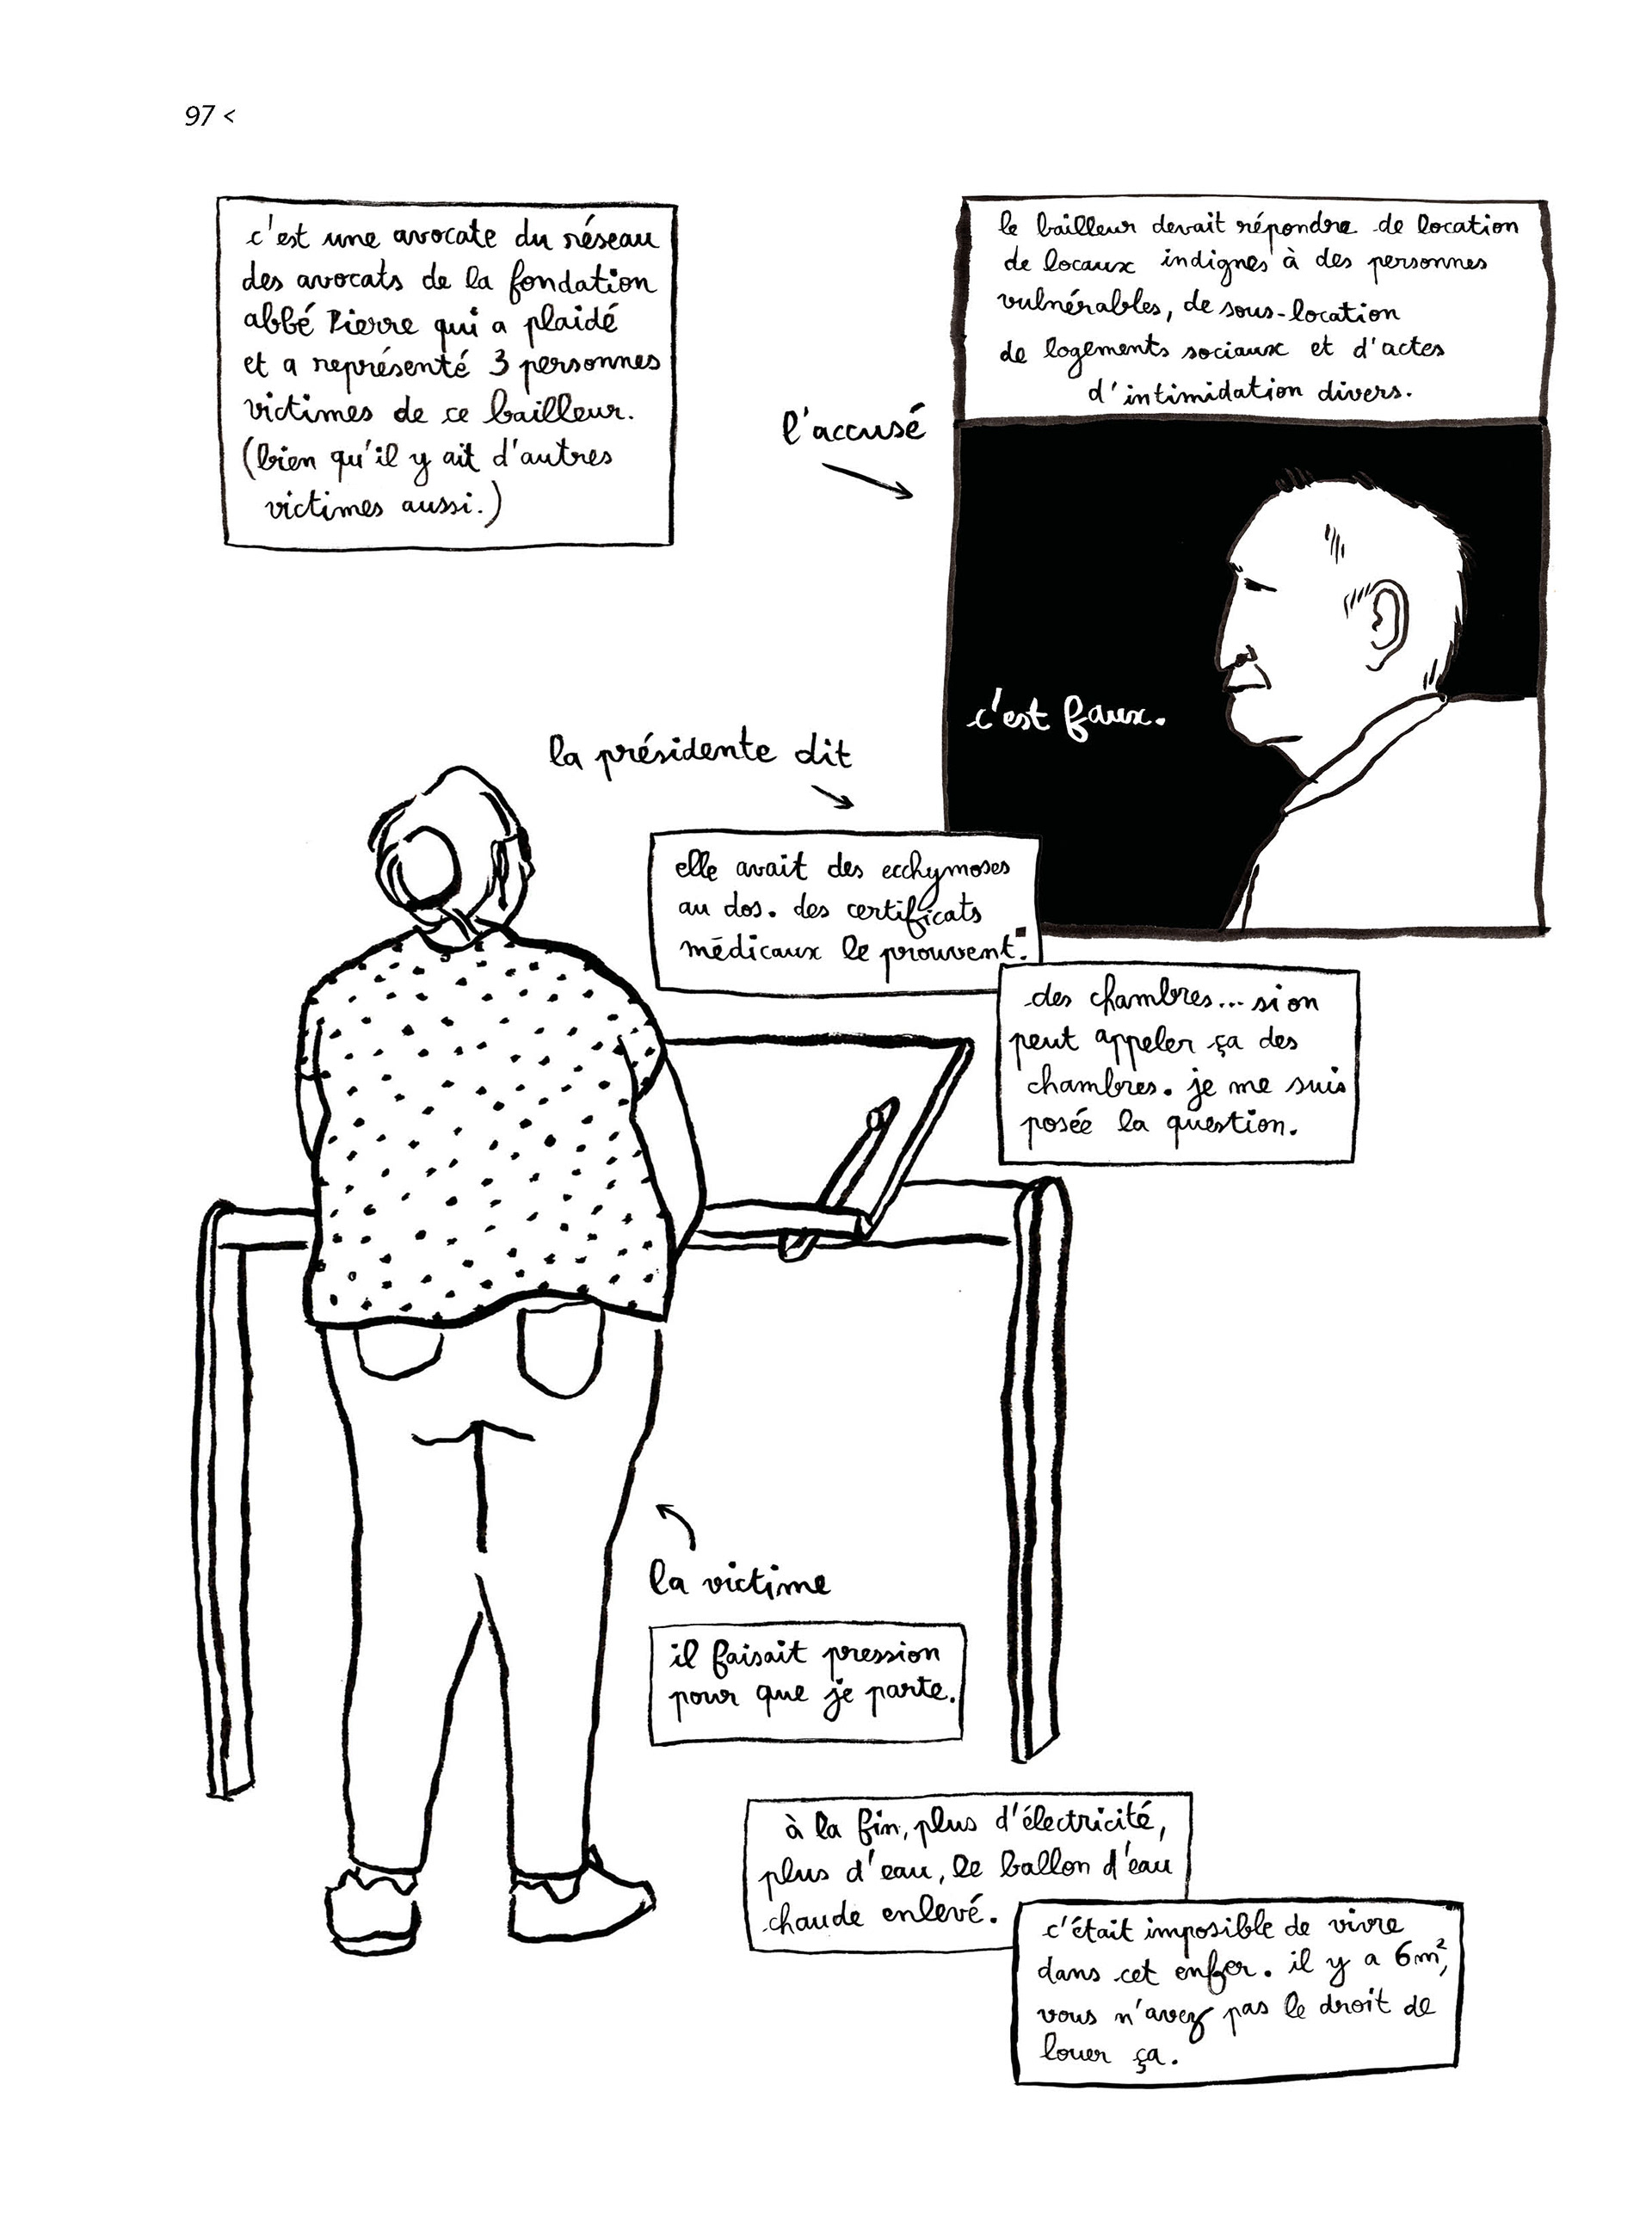 97 <
c'est une avocate du réseau
des avocats de la fondation
abbé Pierre qui a plaidé
et a représenté 3 personnes
victimes de ce bailleur.
(bien qu'il y ait d'autres
victimes aussi.)
le bailleur devait répondre de location
de locaux indignes à des personnes
vulnérables, de sous-location
de logements sociaux et d'actes
d'intimidation divers.
l'accusé
c'est faux.
la présidente dit
elle avait des ecchymoses
au dos. des certificats
médicaux le prouvent.
des chambres... si on
peut appeler ça des
chambres. je me suis
posée la question.
la victime
il faisait pression
pour que je parte.
à la fin, plus d'électricité,
plus d'eau, le ballon d'eau
chaude enlevé.
c'était imposible de vivre
dans cet enfer. il y a 6m²,
vous n'avez pas le droit de
louer ça.